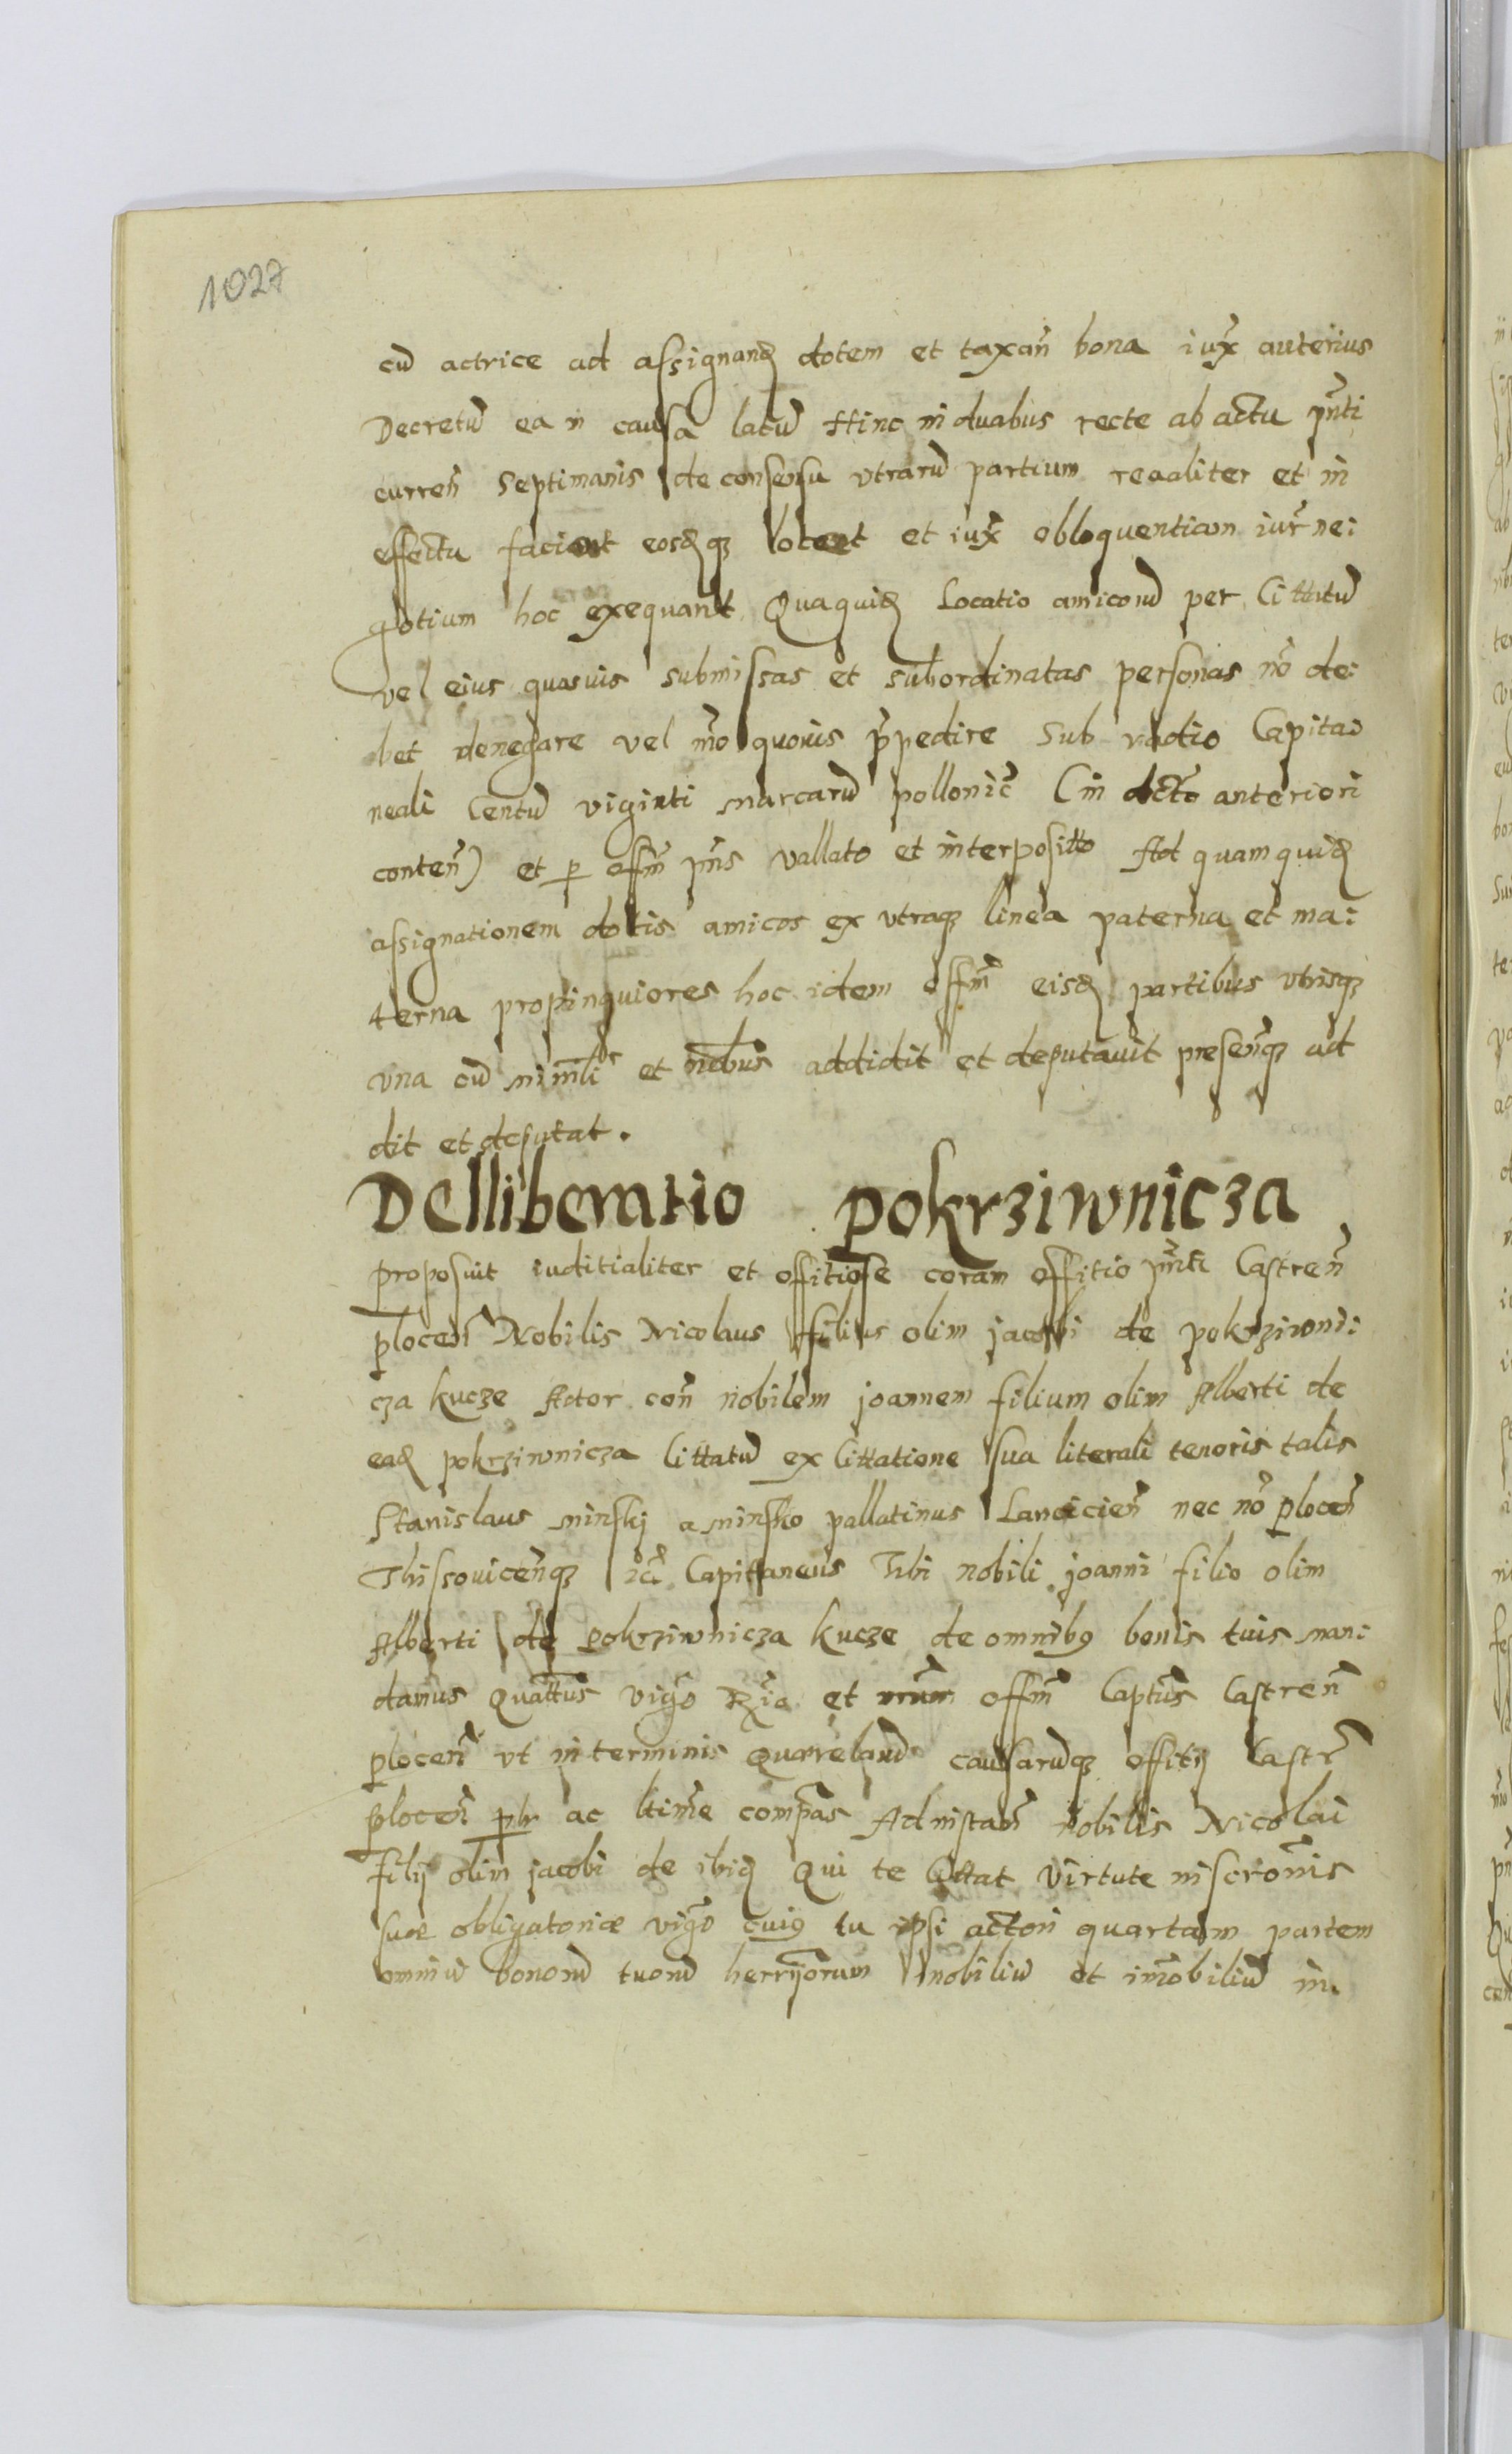 1027
cū actrice ad assignanđ dotem et taxan̄ bona iux̄ anterius
Decretū ea in causa latū Hinc in duabus recte ab actu pn̄ti
curren̄ Septimanis de consensu vtrarū partium reaaliter et in
effectu faciant eosđqȝ locent et iux̄ obloquentiam iur̄ ne:
gotium hoc exequant Quaquiđ Locatio amicorū per Cittatū
vel eius quasuis submissas et subordinatas personas nō de:
bet denegare vel mō quouis p̄pedire Sub vadio Capita
neali Centū viginti marcarū pollonic̄ (in dcto anteriori
conten̄) et p offm̄ pn̄s vallato et interposito Ad quamquiđ
assignationem dotis amicos ex vtraqȝ linea paterna et ma:
terna propinquiores hoc idem offm̄ eisđ partibus vtrisqȝ
vna cū et nōbus addidit et deputauit presen̄qȝ ad
dit et deputat.
Delliberatio pokrziwnicza
proposuit iuditialiter et offitiose coram offitio pn̄ti Castren̄
plocen̄ Nobilis Nicolaus filius olim jacobi de pokrziwni:
cza kucze Actor con̄ nobilem joannem filium olim Alberti de
eađ pokrziwnicza Cittatū ex Cittatione sua literali tenoris talis
Stanislaus minskj a minsko pallatinus Lancicien̄ nec nō plocen̄
Thissouicen̄qȝ Capittaneus Tibi nobili joanni filio olim
Alberti de pokrziwnicza kucze de omnibꝯ bonis tuis man:
damus Quattus̄ vigō R̄ia et offm̄ Captus̄ Castren̄
plocen̄ vt in terminis Querelarū causarūqȝ offitij Castr̄
plocen̄ plr ac ltime compās Ad instan̄ Nobilis Nicolai
filij olim jacobi de ibiđ Qui te Cittat Virtute inscrōnis
suæ obligatoriæ vigō cuiꝯ tu ipsi actori quartam partem
omniū bonorū tuorū herrij̄orum mobiliū et im̄obiliū in